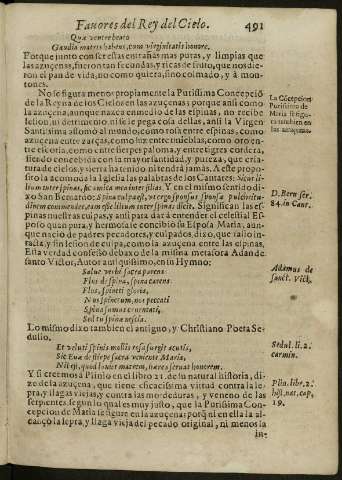 Fauores del Rey del Cielo. 491
Quæ ventre beato
Gaudia matris habens, cum virginitatis honore.
Porque junto con estas entrañas mas puras, y limpias que
las azuçenas, fueron tan fecundas, y ricas de fruto, que nos die-
ron el pan de vida, no como quiera, sino colmado, y à mon-
tones.
No se figura menos propiamente la Purissima Concepciõ
de la Reyna de los Cielos en las azuçenas; porque ansi como
la azuçena, aunque nazca en medio de las espinas, no recibe
lesion, ni detrimento, ni se le pega cosa dellas, ansi la Virgen
Santissima assomò al mundo, como rosa entre espinas, como
azuçena entre zarças, como luz entre tinieblas, como oro en-
tre escoria, como entre sierpes paloma, y entre tigres cordera,
siendo concebida con la mayor santidad, y pureza, que cria-
tura de cielos, y tierra ha tenido, ni tendrà jamas. A este propo-
sito la acomoda la Iglesia las palabras de los Cantares: Sicut li-
lium inter spinas, sic amica mea inter filias. Y en el mismo sentido di-
xo San Bernardo: Spina culpa est, vt ergo sponsus sponsæ pulchritu-
dinem commendet, eam esse lilium inter spinas dicit. Significan las es-
pinas nuestras culpas, y ansi para dar à entender el celestial Es-
poso quan pura, y hermosa le concibio su Esposa Maria, aun-
que nacio de padres pecadores, y culpados, dixo, que salio in-
tacta, y sin lesion de culpa, como la azuçena entre las espinas.
Esta verdad confessò debaxo de la misma metafora Adan de
santo Victor, Autor antiquissimo, en su Hymno:
Salue verbi sacra parens
Flos de spina, spina carens
Flos, spineti gloria,
Nos spinetum, nos peccati
Spina sumus cruentati,
Sed tu spinæ nescia.
Lo mismo dixo tambien el antiguo, y Christiano Poeta Se-
dulio.
Et veluti spinis mollis rosa surgit acutis,
Sic Euæ de stirpe sacra veniente Maria,
Nil est, quod lædat matrem, hæc obscurat honorem.
Y si creemos à Plinio en el libro 21. de su natural historia, di-
ze de la azuçena, que tiene eficacissima virtud contra la le-
pra, y llagas viejas, y contra las mordeduras, y veneno de las
serpientes, segun lo qual es muy justo, que la Purissima Con-
cepcion de Maria se figure en la azuçena; porq̃ ni en ella la al-
cançò la lepra, y llaga vieja del pecado original, ni menos la
in-
La Cõcepcion
Purissima de
Maria se figu-
ra tambien en
las azuçenas.
D. Bern ser.
84. in Cant.
Adamus de
sanct. Vict.
Sedul. li. 2.
carmin.
Plin. libr. 2.
hist. nat. cap.
19.